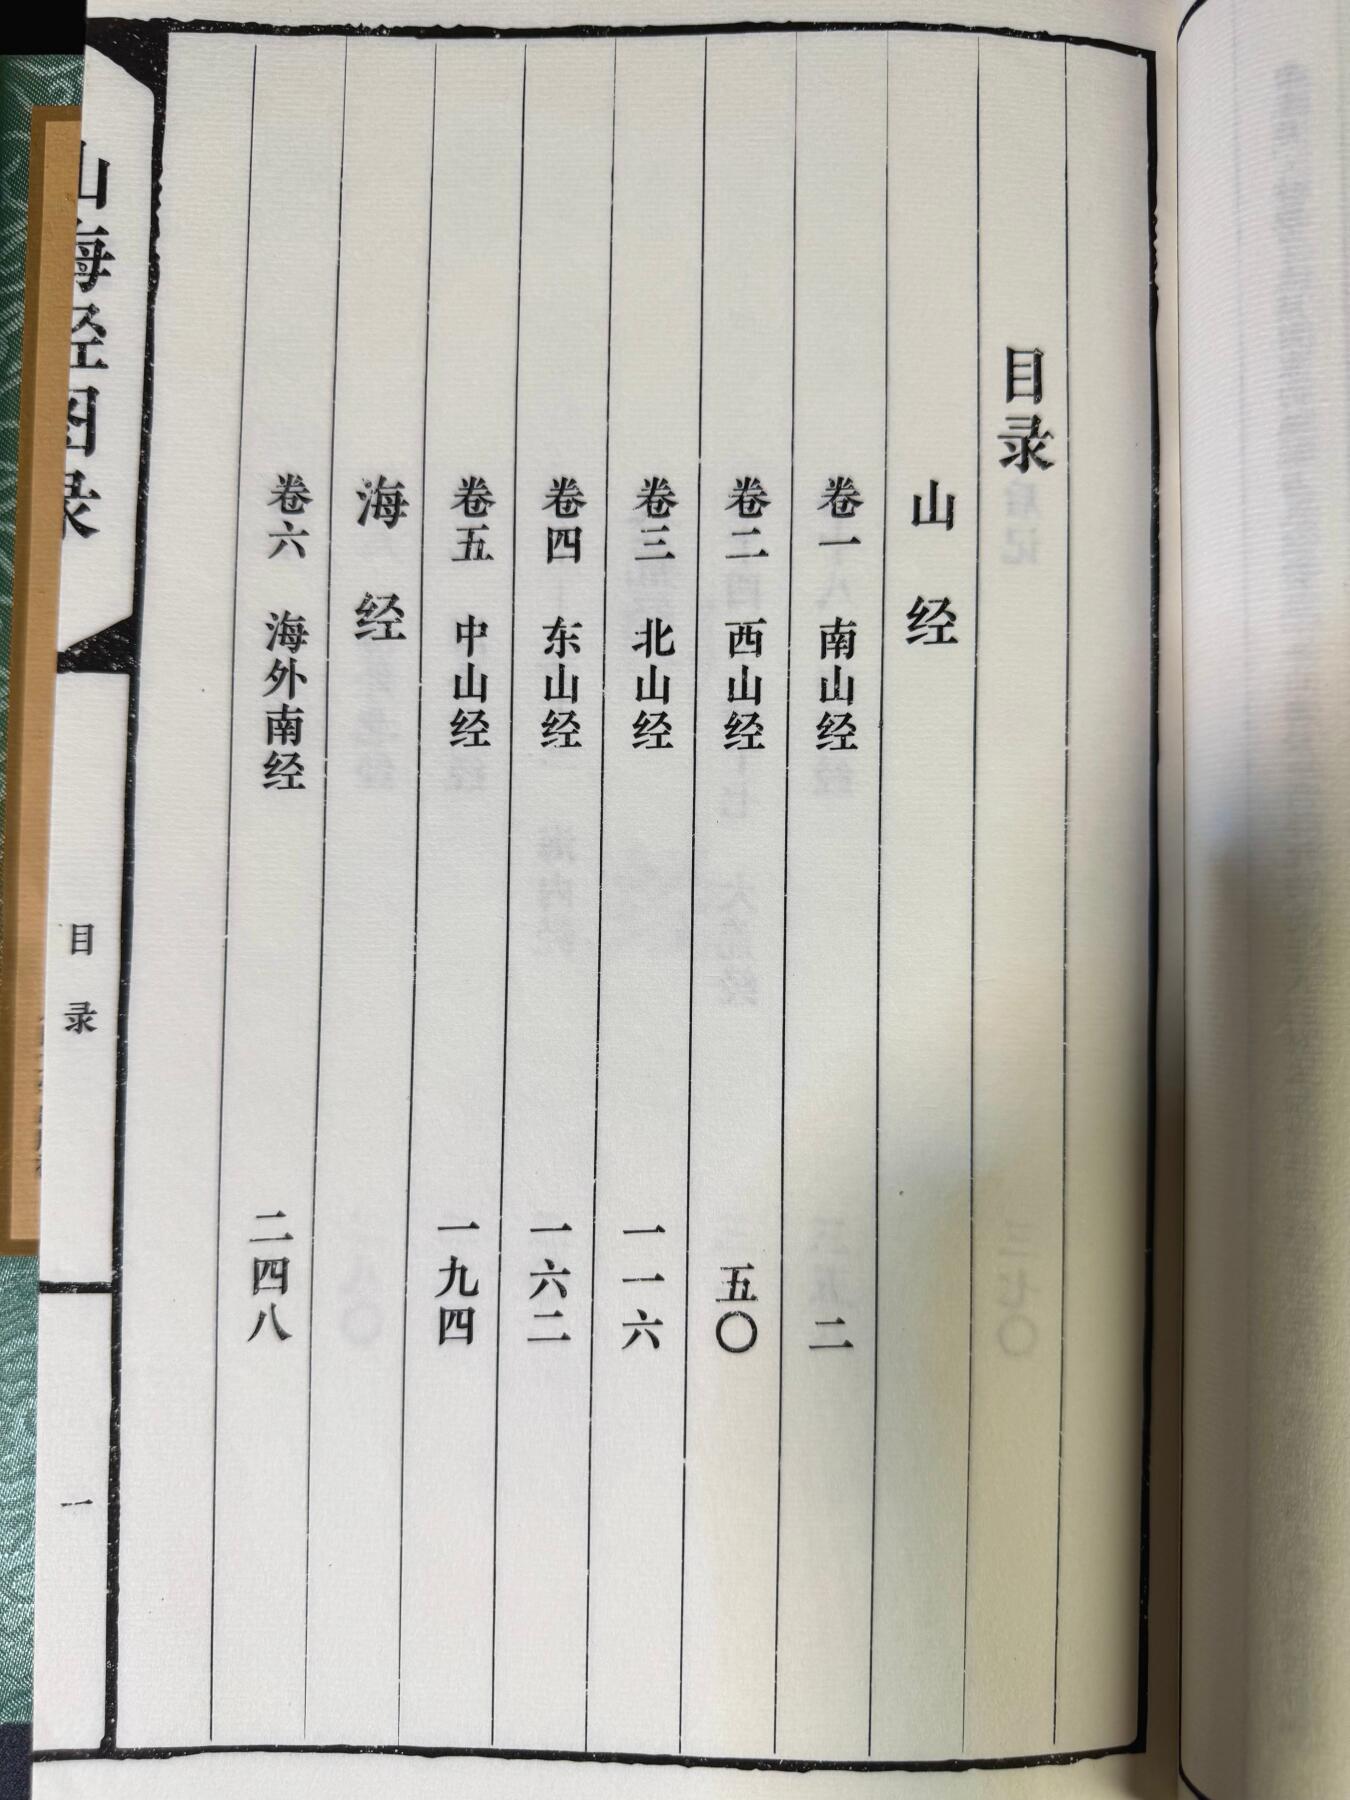 目录
山经
卷一 南山经 二
卷二 西山经 五〇
卷三 北山经 一一六
卷四 东山经 一六二
卷五 中山经 一九四
海经
卷六 海外南经 二四八
山海经图录
目录
一